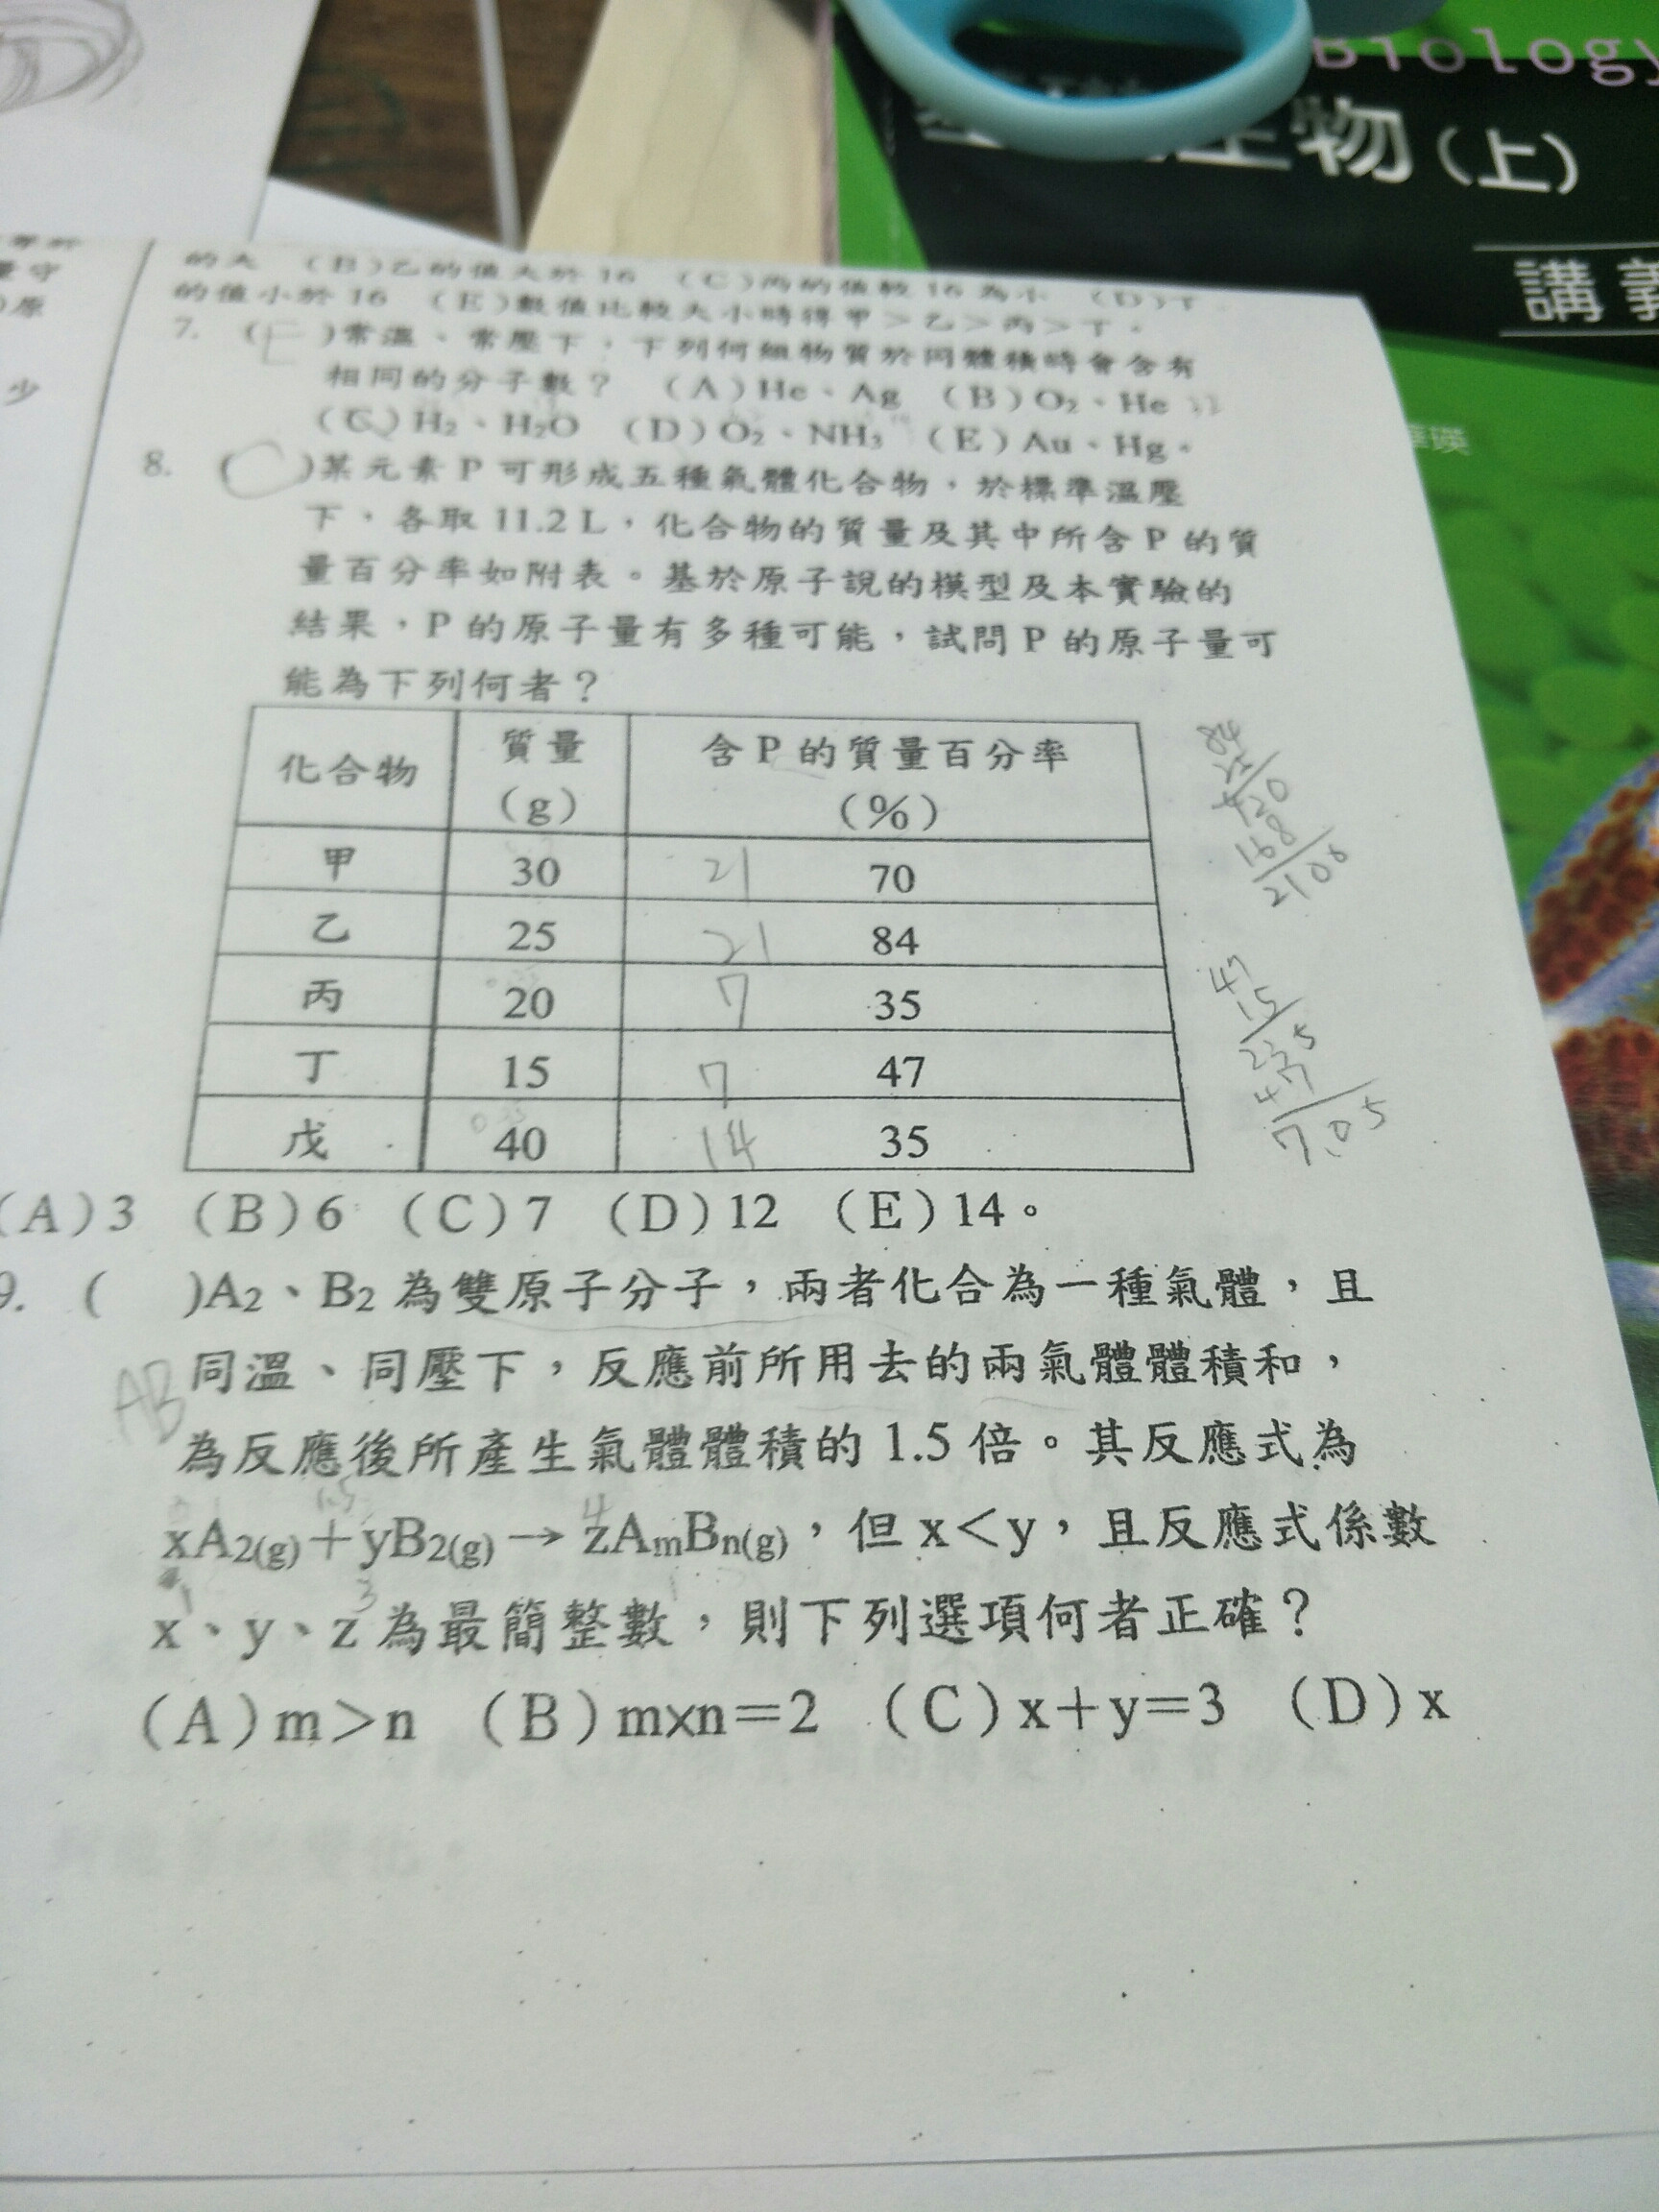 Biology
物(上)
講義
的值小於 16 (E)數值比較大小時得甲>乙>丙>丁。
7. (E)常溫、常壓下,下列何組物質於同體積時會含有
相同的分子數? (A)He、Ag (B)O₂、He
(C)H₂、H₂O (D)O₂、NH₃ (E)Au、Hg。
8. ( )某元素 P 可形成五種氣體化合物,於標準溫壓
下,各取 11.2 L,化合物的質量及其中所含 P 的質
量百分率如附表。基於原子說的模型及本實驗的
結果,P 的原子量有多種可能,試問 P 的原子量可
能為下列何者?
化合物 質量(g) 含 P 的質量百分率(%)
甲 30 21 70
乙 25 21 84
丙 20 7 35
丁 15 7 47
戊 40 14 35
84
420
168
47
15
235
47
7.05
(A)3 (B)6 (C)7 (D)12 (E)14。
9. ( )A₂、B₂ 為雙原子分子,兩者化合為一種氣體,且
AB
同溫、同壓下,反應前所用去的兩氣體體積和,
為反應後所產生氣體體積的 1.5 倍。其反應式為
xA₂(g)+yB₂(g)→ zAmBn(g),但 x<y,且反應式係數
x、y、z 為最簡整數,則下列選項何者正確?
(A)m>n (B)m×n=2 (C)x+y=3 (D)x